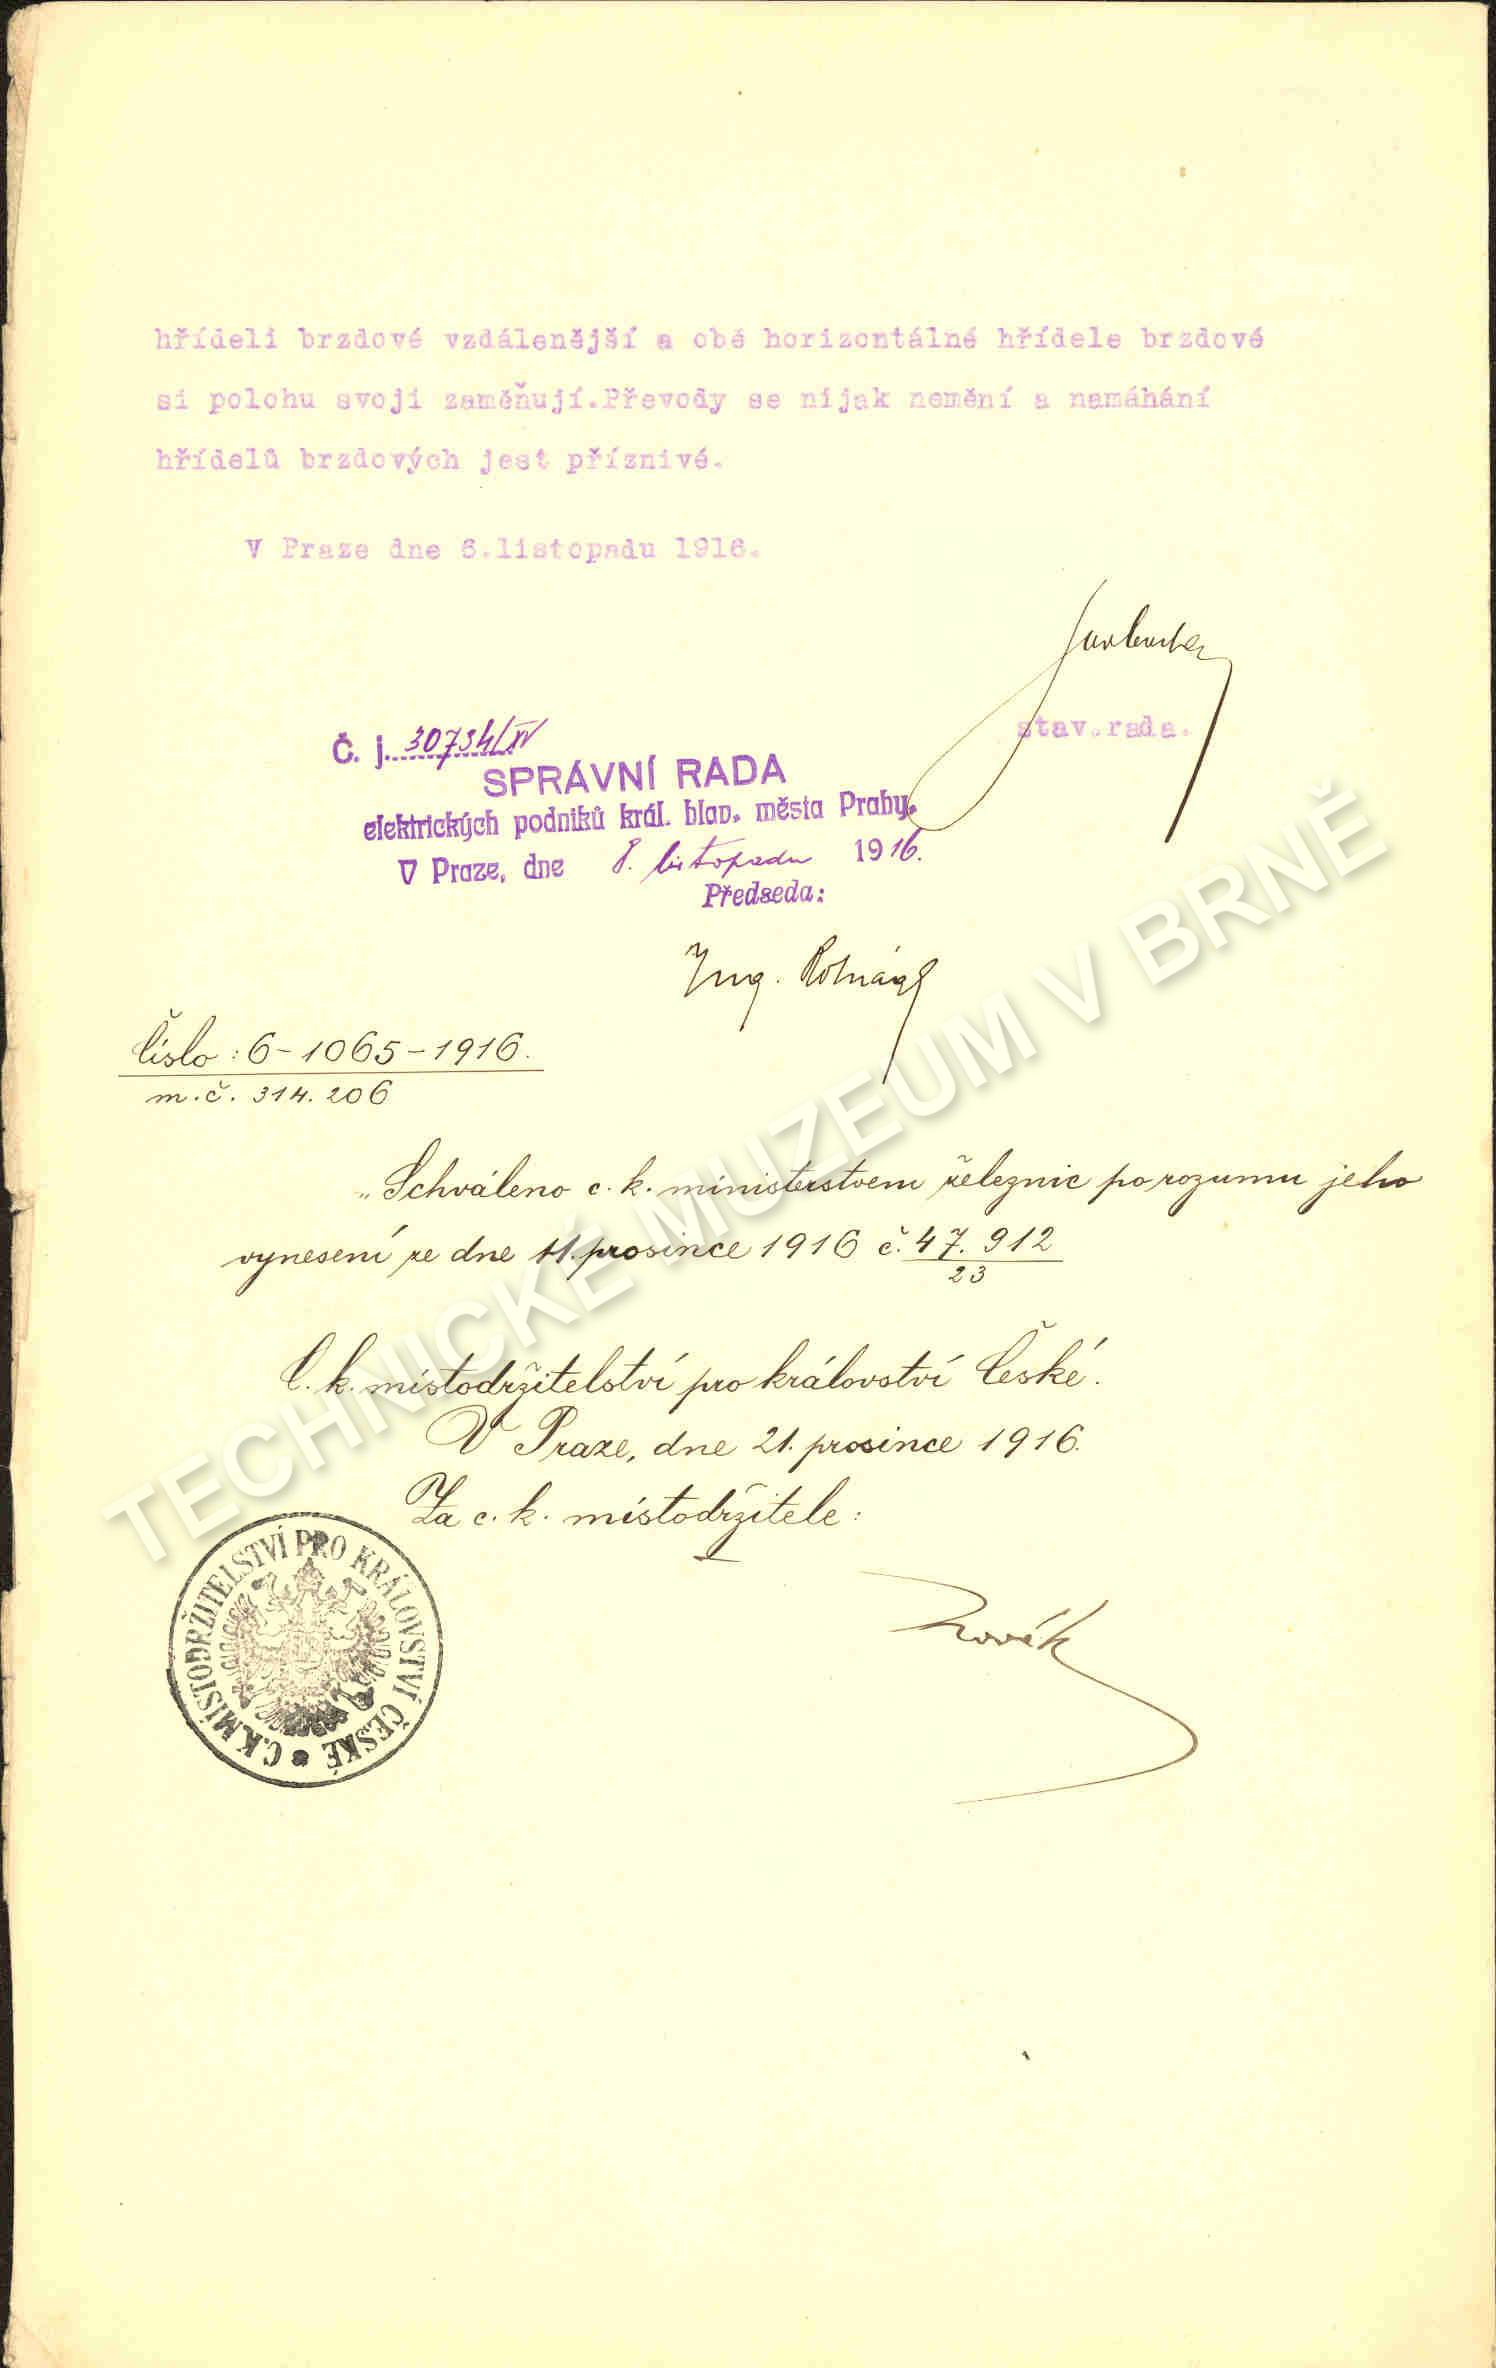 hřídeli brzdové vzdálenější a obě horizontálné hřídele brzdové
si polohu svoji zaměňují.Převody se nijak nemění a namáhání
hřídelů brzdových jest příznivé.
V Praze dne 6.listopadu 1916.
stav.rada.
Č. j. 30734/IV
SPRÁVNÍ RADA
elektrických podniků král. hlav. města Prahy.
V Praze, dne 8. listopadu 1916.
Předseda:
Ing. Rotnágl
Číslo: 6-1065-1916.
m.č. 314.206
„Schváleno c. k. ministerstvem železnic po rozumu jeho
vynesení ze dne 11. prosince 1916 č. 47.912
23
C. k. místodržitelství pro království České.
V Praze, dne 21. prosince 1916.
Za c. k. místodržitele:
Novák
C.K.MÍSTODRŽITELSTVÍ PRO KRÁLOVSTVÍ ČESKÉ
TECHNICKÉ MUZEUM V BRNĚ